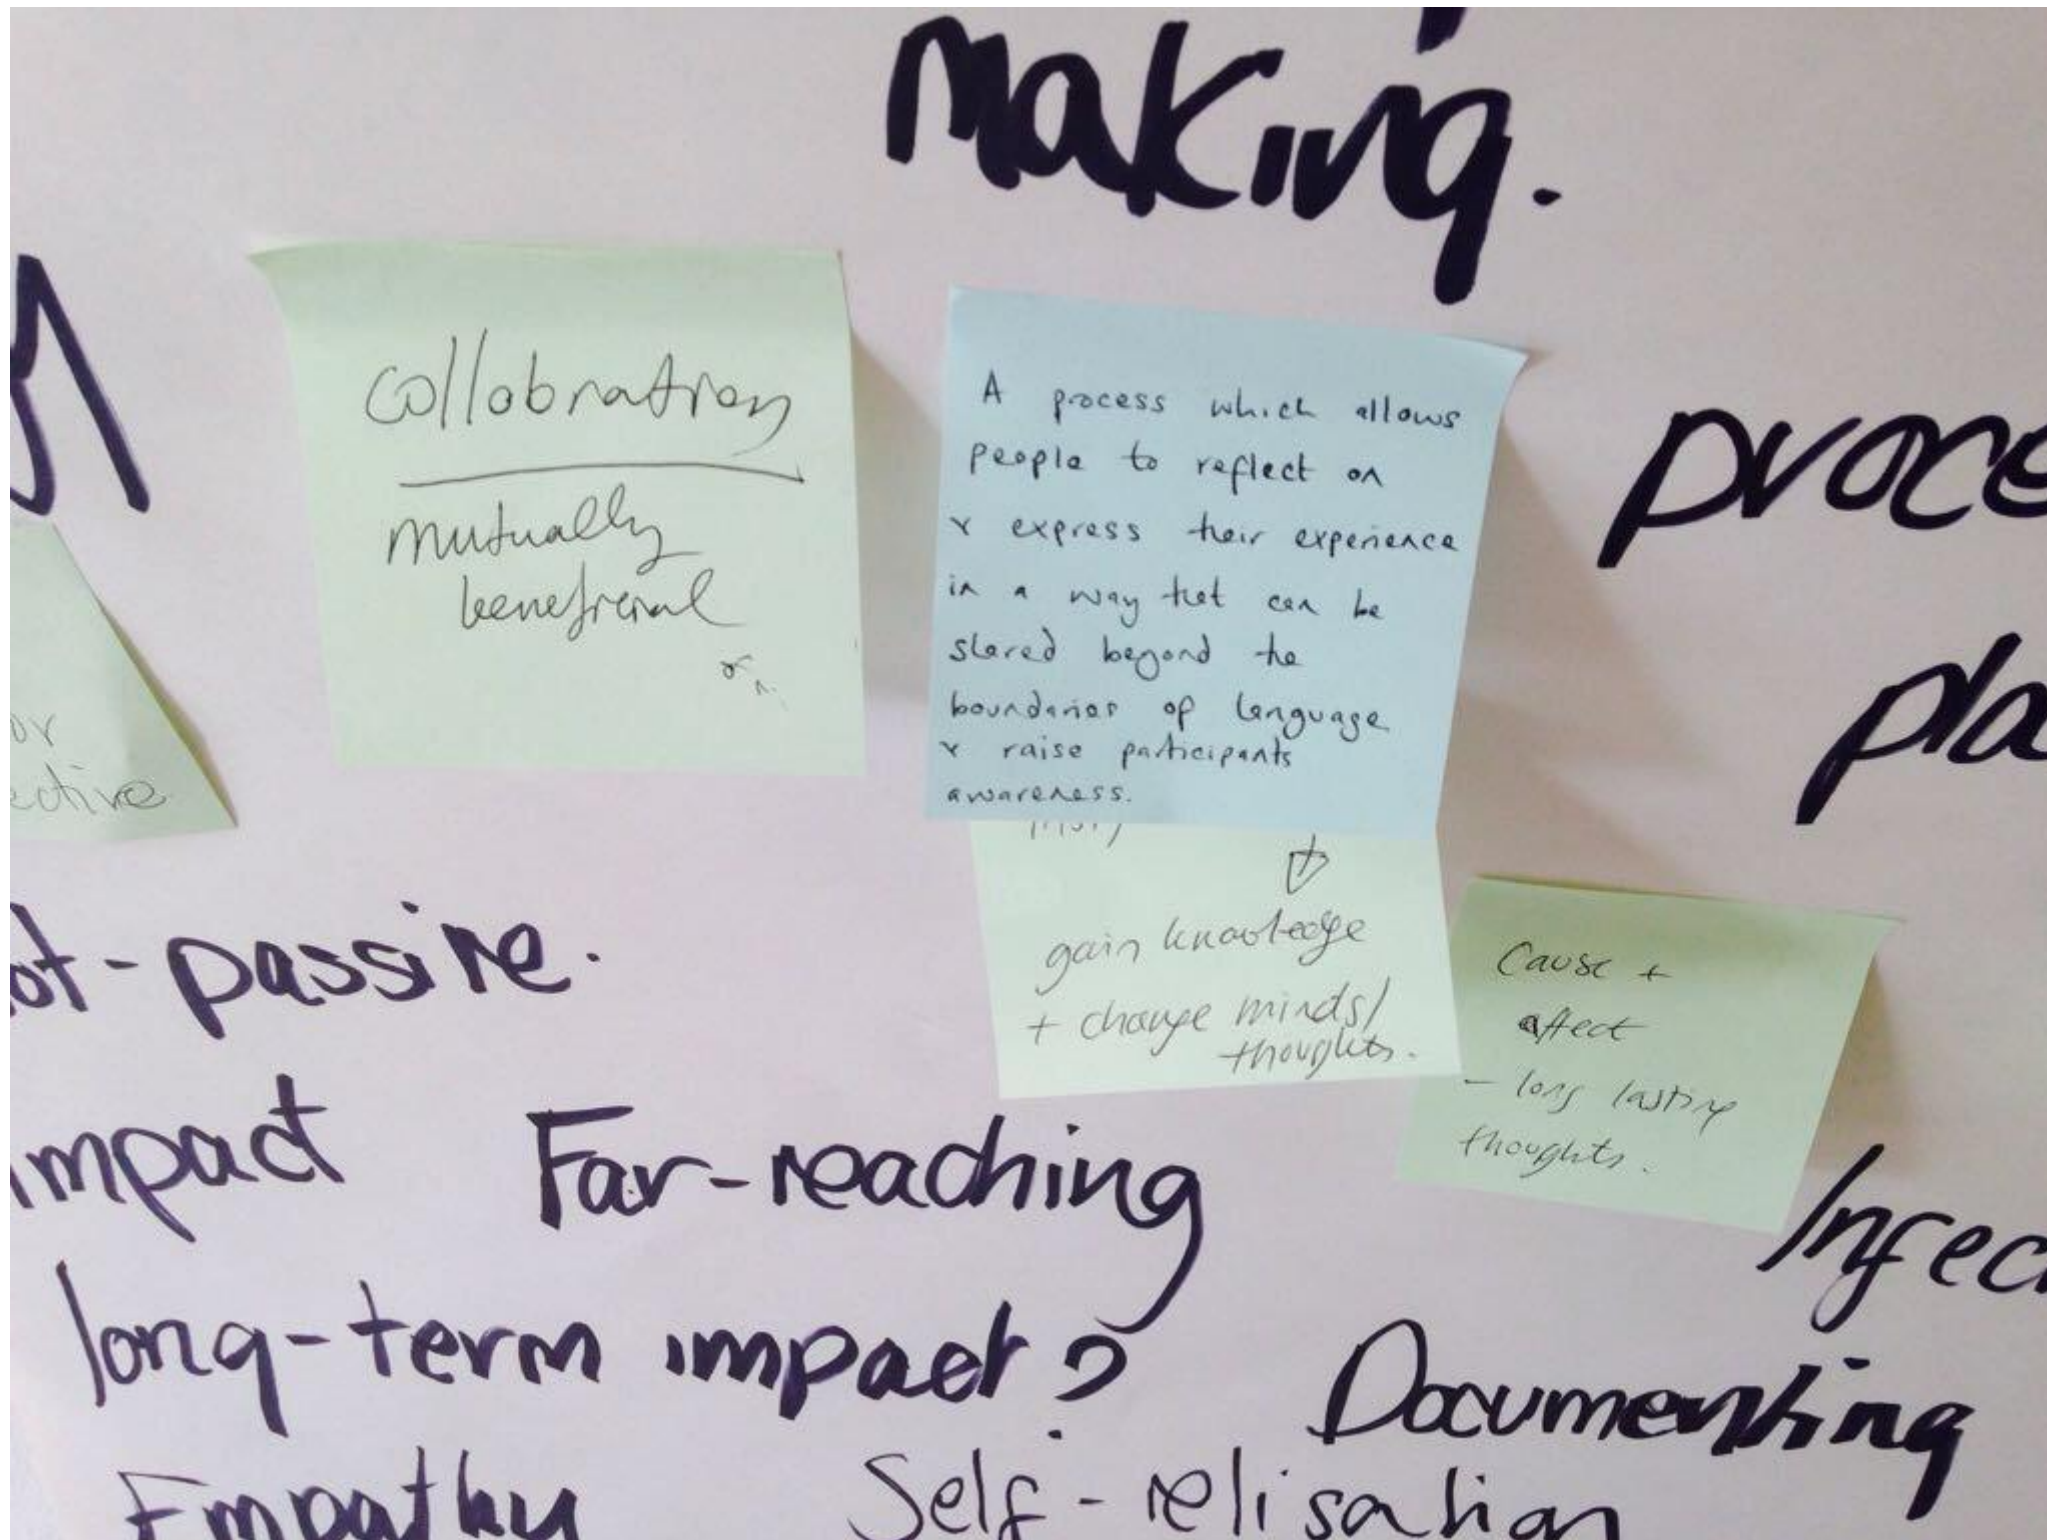 making.
collaboration
mutually
beneficial
or
A process which allows
people to reflect on
& express their experience
in a way that can be
shared beyond the
boundaries of language
& raise participants
awareness.
proce
pla
or
ective
gain knowledge
+ change minds/
thoughts.
Cause +
affect
- long lasting
thoughts.
ot-passive.
impact Far-reaching
Infec
long-term impact?
Documenting
Empathy Self-relisation